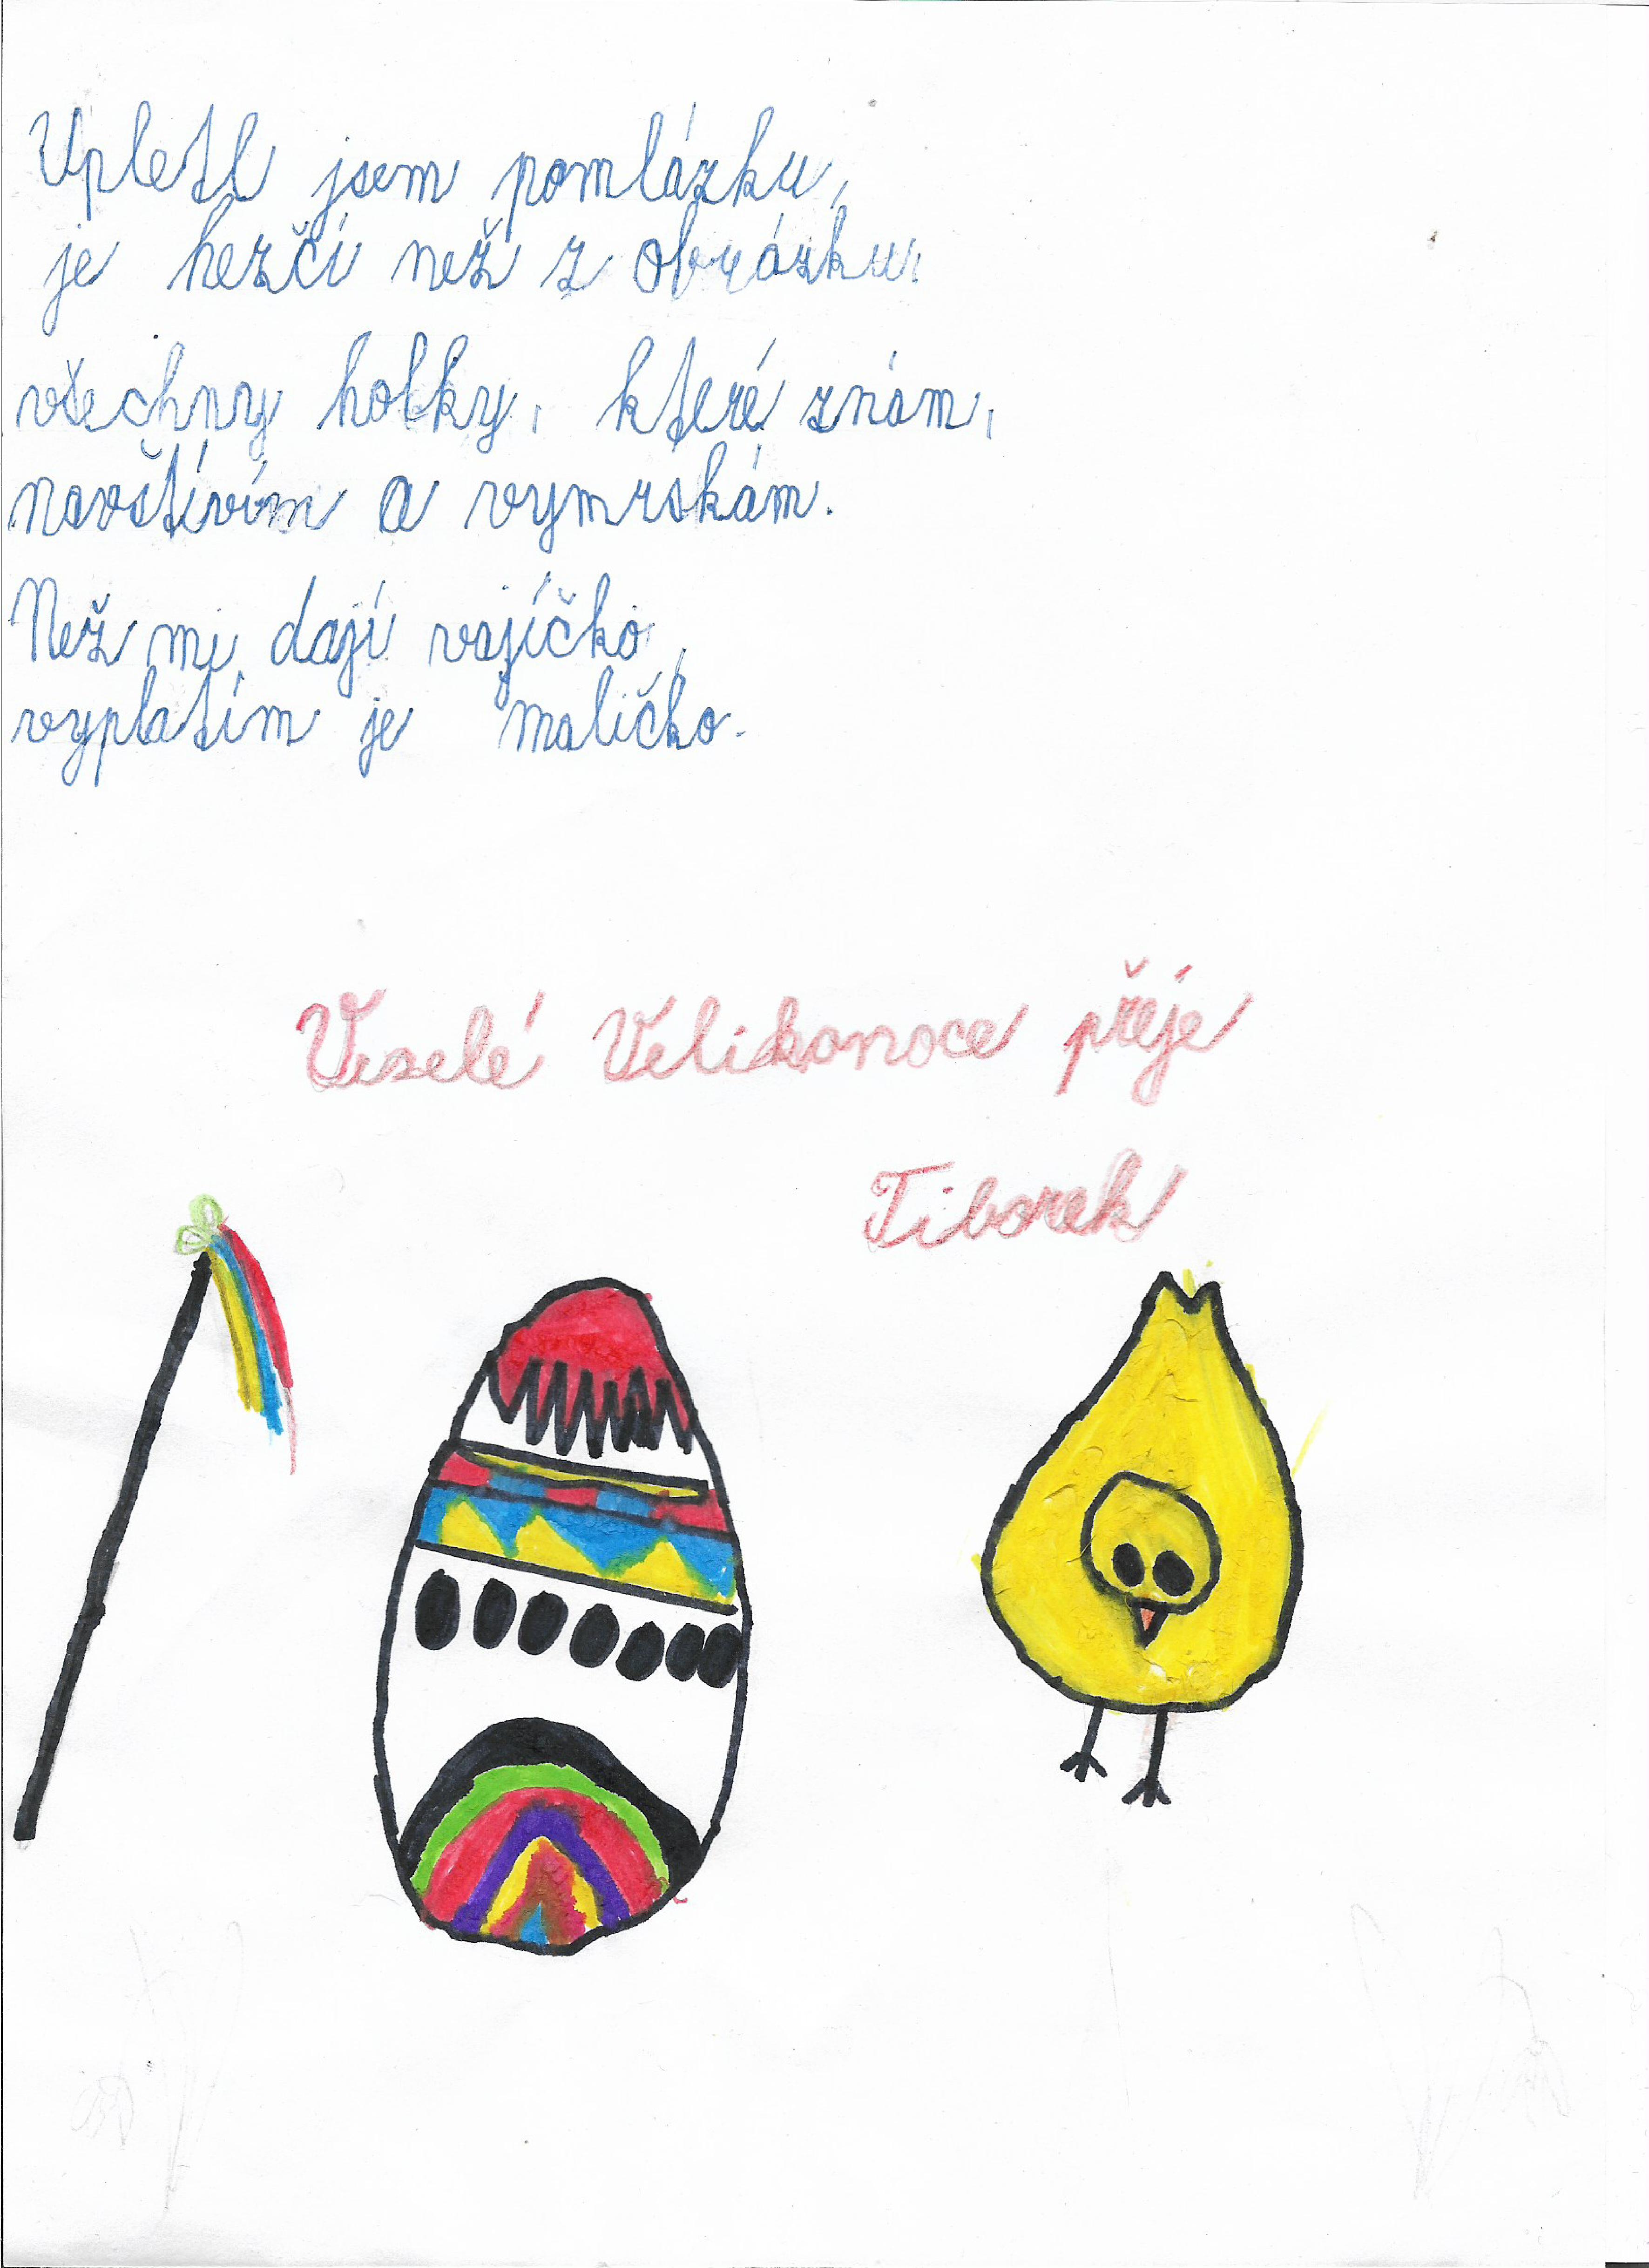 Upletl jsem pomlázku,
je hezčí než z obrázku,
všechny holky, které znám,
navštívím a vymrskám.
Než mi dají vajíčko,
vyplatím je maličko.
Veselé Velikonoce přeje
Tiborek